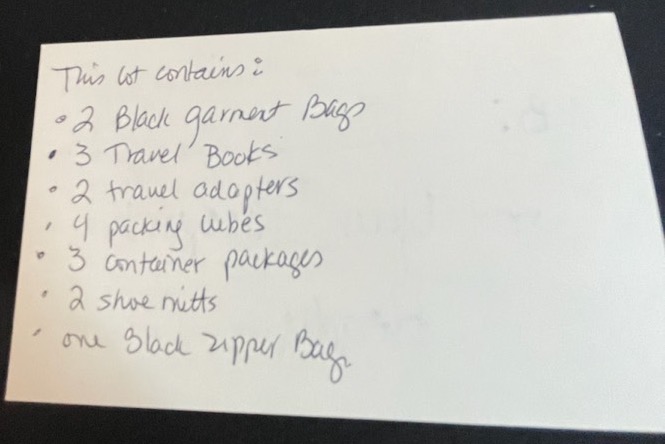 This lot contains:
• 2 Black garment Bags
• 3 Travel Books
• 2 travel adapters
• 4 packing cubes
• 3 container packages
• 2 shoe mitts
• one Black zipper Bag